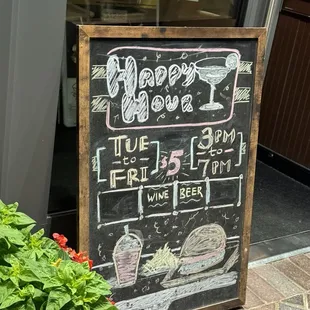 Happy
Hour
TUE to FRI
$5
3PM to 7PM
WINE BEER